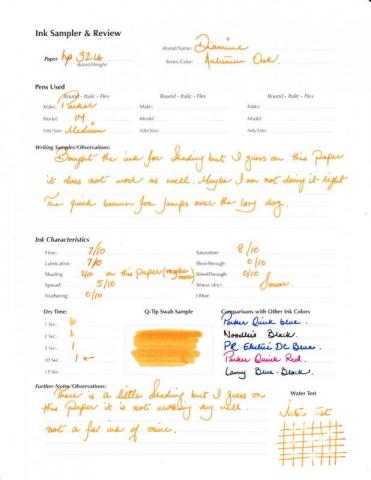 Ink Sampler & Review
Brand/Name: Diamine
Paper hp 32 lb Series/Color: Autumn Oak.
Brand/Weight
Pens Used
Round - Italic - Flex Round - Italic - Flex Round - Italic - Flex
Make: Parker Make: Make:
Model: IM Model: Model:
Nib/Size: Medium Nib/Size: Nib/Size:
Writing Samples/Observations:
Bought the ink for shading but I guess on this paper
it does not work as well. Maybe I am not doing it right
The quick brown fox jumps over the lazy dog.
Ink Characteristics
Flow: 7/10 Saturation: 8/10
Lubrication: 7/10 Showthrough: 0/10
Shading: 2/10 on this paper (maybe more) Bleedthrough: 0/10
Spread: 5/10 Smear (dry): Smear.
Feathering: 0/10 Other:
Dry Time: Q-Tip Swab Sample Comparisons with Other Ink Colors
1 Sec. Parker Quink blue.
2 Sec. Noodler's Black.
5 Sec. PR Electric DC Blue.
10 Sec. Parker Quink Red.
15 Sec. Lamy Blue-Black.
Further Notes/Observations: Water Test
There is a little shading but I guess on
this Paper it is not working very well.
not a fav ink of mine.
Water Test